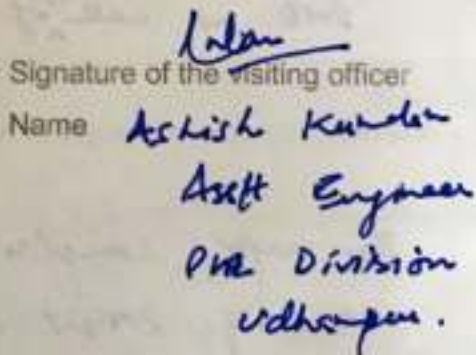 Signature of the visiting officer
Name Ashish Kundan
Asstt Engineer
PHE Division
Udhampur.